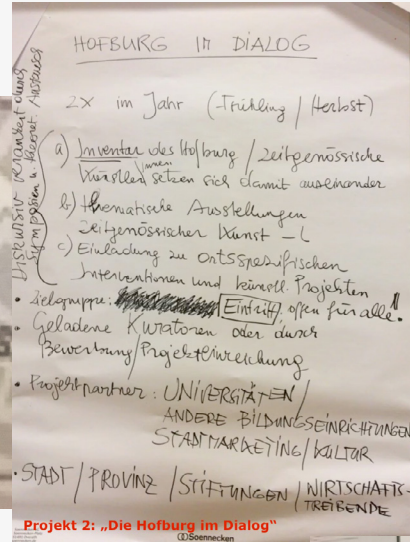 HOFBURG IM DIALOG
2x im Jahr (Frühling / Herbst)
Diskursiv verankert durch
Symposien u. theoret. Austausch
a) Inventar des Hofburg / zeitgenössische
Künstler/innen setzen sich damit auseinander
b) thematische Ausstellungen
zeitgenössischer Kunst -
c) Einladung zu ortsspezifischen
Interventionen und künstl. Projekten
• Zielgruppe: Eintritt offen für alle!
• Geladene Kuratoren oder durch
Bewerbung/Projekteinreichung
• Projektpartner: UNIVERSITÄTEN /
ANDERE BILDUNGSEINRICHTUNGEN
STADTMARKETING/KULTUR
• STADT / PROVINZ / STIFTUNGEN / WIRTSCHAFTS-
TREIBENDE
Projekt 2: „Die Hofburg im Dialog“
Soennecken